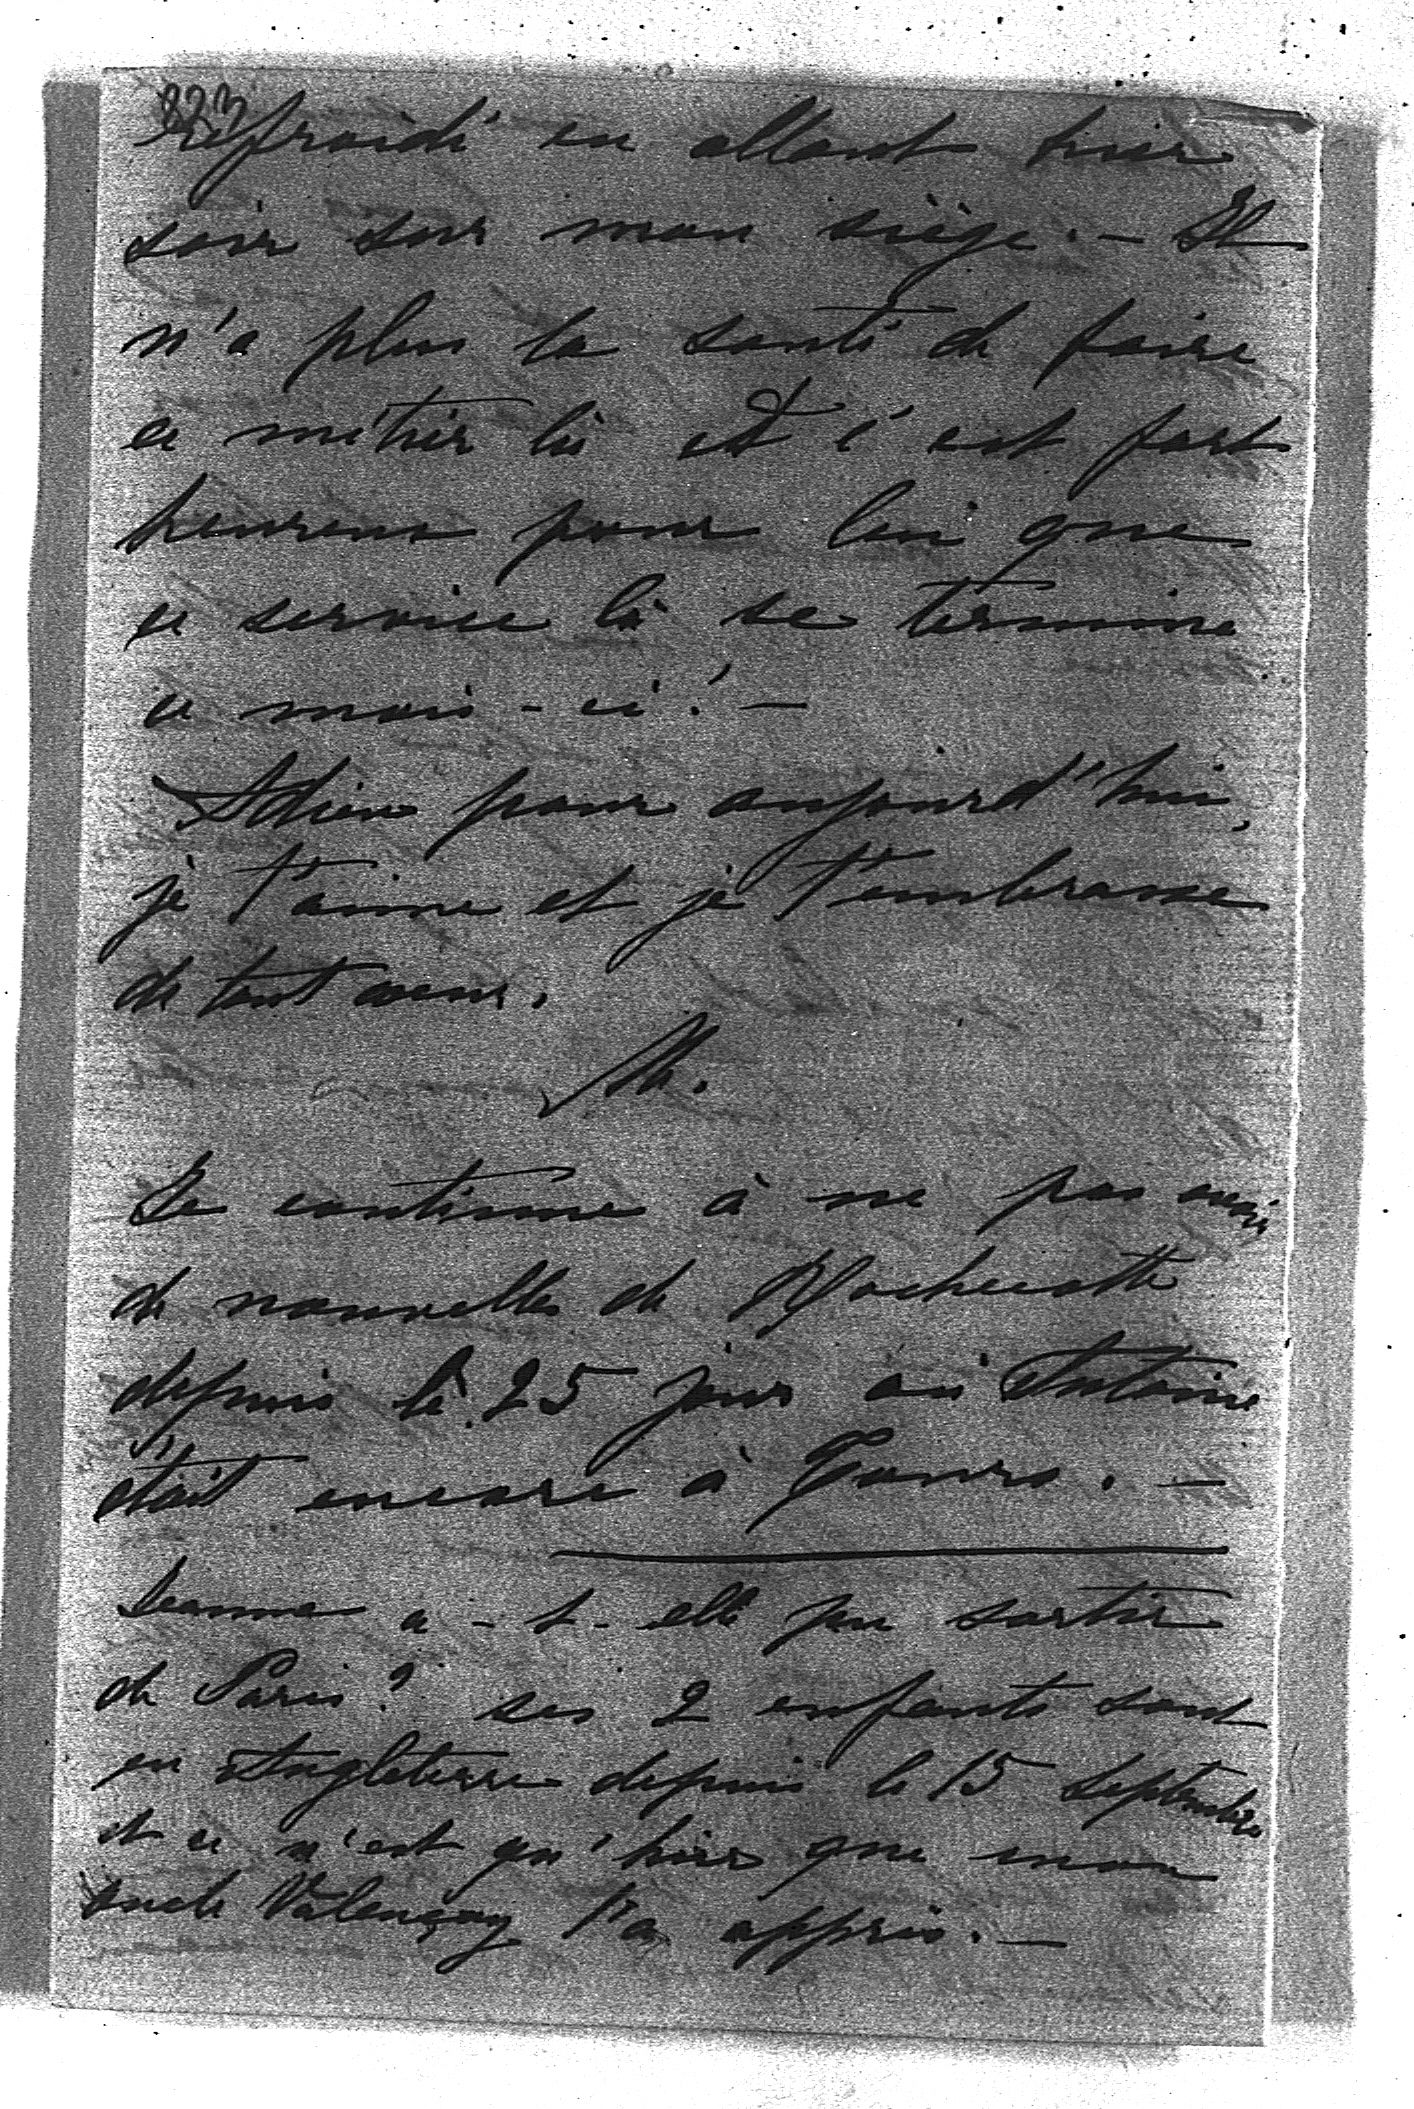 223
refroidi en allant hier
soir sur mon siège. — Il
n'a plus la santé de faire
ce métier là et c'est fort
heureux pour lui que
ce service là se termine
ce mois-ci! —
Adieu pour aujourd'hui,
je t'aime et je t'embrasse
de tout cœur.
M.
Je continue à ne pas avoir
de nouvelles de Rochecotte
depuis le 25 jour où Antoine
était encore à Tours. —
Jeanne a-t-elle pu sortir
de Paris? ses 2 enfants sont
en Angleterre depuis le 15 septembre
et ce n'est qu'hier que mon
oncle Valençay l'a appris. —